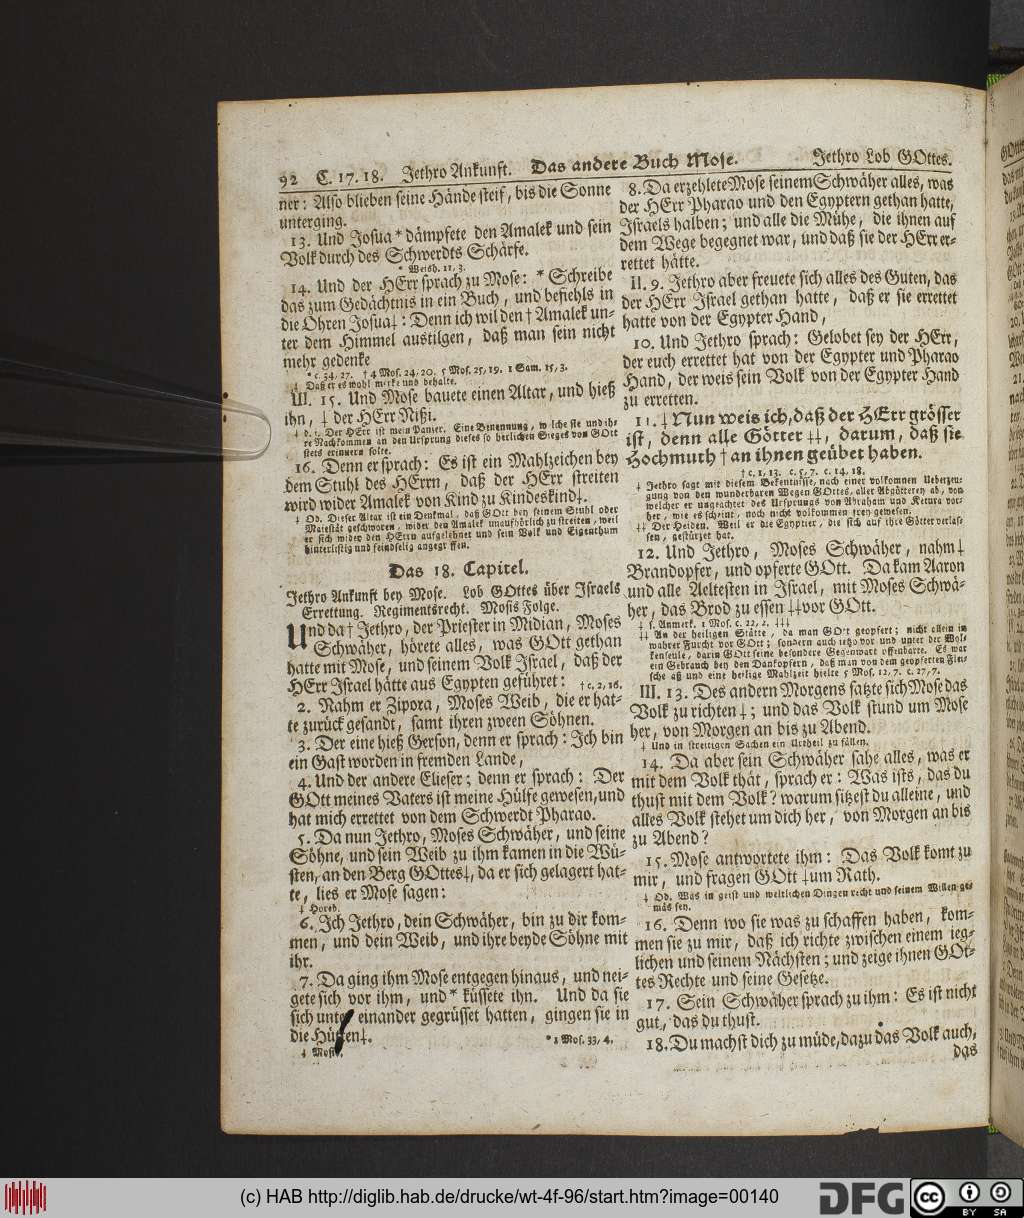 92 C. 17. 18. Jethro Ankunft. Das andere Buch Mose. Jethro Lob GOttes.
ner: Also blieben seine Hände steif, bis die Sonne
unterging.
13. Und Josua * dämpfete den Amalek und sein
Volk durch des Schwerdts Schärfe.
* Weish. 11, 3.
14. Und der HErr sprach zu Mose: * Schreibe
das zum Gedächtnis in ein Buch, und befiehls in
die Ohren Josua‡: Denn ich wil den † Amalek un-
ter dem Himmel austilgen, daß man sein nicht
mehr gedenke
* c. 34, 27. † 4 Mos. 24, 20. 5 Mos. 25, 19. 1 Sam. 15, 3.
‡ Daß er es wohl merke und behalte.
III. 15. Und Mose bauete einen Altar, und hieß
ihn, ‡ der HErr Nißi.
‡ d. i. Der HErr ist mein Panier. Eine Benennung, welche sie und ih-
re Nachkommen an den Ursprung dieses so herlichen Sieges von GOtt
stets erinnern solte.
16. Denn er sprach: Es ist ein Mahlzeichen bey
dem Stuhl des HErrn, daß der HErr streiten
wird wider Amalek von Kind zu Kindeskind‡.
‡ Od. Dieser Altar ist ein Denkmal, daß GOtt bey seinem Stuhl oder
Majestät geschworen, wider den Amalek unaufhörlich zu streiten, weil
er sich wider den HErrn aufgelehnet und sein Volk und Eigenthum
hinterlistig und feindselig angegriffen.
Das 18. Capitel.
Jethro Ankunft bey Mose. Lob GOttes über Israels
Errettung. Regimentsrecht. Mosis Folge.
Und da † Jethro, der Priester in Midian, Moses
Schwäher, hörete alles, was GOtt gethan
hatte mit Mose, und seinem Volk Israel, daß der
HErr Israel hätte aus Egypten geführet: † c. 2, 16.
2. Nahm er Zipora, Moses Weib, die er hat-
te zurück gesandt, samt ihren zween Söhnen.
3. Der eine hieß Gerson, denn er sprach: Ich bin
ein Gast worden in fremden Lande,
4. Und der andere Elieser; denn er sprach: Der
GOtt meines Vaters ist meine Hülfe gewesen, und
hat mich errettet von dem Schwerdt Pharao.
5. Da nun Jethro, Moses Schwäher, und seine
Söhne, und sein Weib zu ihm kamen in die Wü-
sten, an den Berg GOttes‡, da er sich gelagert hat-
te, lies er Mose sagen:
‡ Horeb.
6. Ich Jethro, dein Schwäher, bin zu dir kom-
men, und dein Weib, und ihre beyde Söhne mit
ihr.
7. Da ging ihm Mose entgegen hinaus, und nei-
gete sich vor ihm, und * küssete ihn. Und da sie
sich unter einander gegrüsset hatten, gingen sie in
die Hütten‡. * 1 Mos. 33, 4.
‡ Mosis.
8. Da erzehlete Mose seinem Schwäher alles, was
der HErr Pharao und den Egyptern gethan hatte,
Israels halben; und alle die Mühe, die ihnen auf
dem Wege begegnet war, und daß sie der HErr er-
rettet hätte.
II. 9. Jethro aber freuete sich alles des Guten, das
der HErr Israel gethan hatte, daß er sie errettet
hatte von der Egypter Hand,
10. Und Jethro sprach: Gelobet sey der HErr,
der euch errettet hat von der Egypter und Pharao
Hand, der weis sein Volk von der Egypter Hand
zu erretten.
11. ‡ Nun weis ich, daß der HErr grösser
ist, denn alle Götter ‡‡, darum, daß sie
Hochmuth † an ihnen geübet haben.
† c. 1, 13. c. 5, 7. c. 14, 18.
‡ Jethro sagt mit diesem Bekentnisse, nach einer volkomnen Ueberzeu-
gung von den wunderbaren Wegen GOttes, aller Abgötterey ab, von
welcher er ungeachtet des Ursprungs von Abraham und Ketura vor-
her, wie es scheint, noch nicht volkommen frey gewesen.
‡‡ Der Heiden. Weil er die Egyptier, die sich auf ihre Götter verlas-
sen, gestürzet hat.
12. Und Jethro, Moses Schwäher, nahm‡
Brandopfer, und opferte GOtt. Da kam Aaron
und alle Aeltesten in Israel, mit Moses Schwä-
her, das Brod zu essen ‡‡ vor GOtt.
‡ s. Anmerk. 1 Mos. c. 22, 2. ‡‡‡
‡‡ An der heiligen Stätte, da man GOtt geopfert; nicht allein in
wahrer Furcht vor GOtt; sondern auch ietzo vor und unter der Wol-
kenseule, darin GOtt seine besondere Gegenwart offenbarte. Es war
ein Gebrauch bey den Dankopfern, daß man von dem geopferten Flei-
sche aß und eine heilige Mahlzeit hielte 5 Mos. 12, 7. c. 27, 7.
III. 13. Des andern Morgens satzte sich Mose das
Volk zu richten‡; und das Volk stund um Mose
her, von Morgen an bis zu Abend.
‡ Und in streitigen Sachen ein Urtheil zu fällen.
14. Da aber sein Schwäher sahe alles, was er
mit dem Volk thät, sprach er: Was ists, das du
thust mit dem Volk? warum sitzest du alleine, und
alles Volk stehet um dich her, von Morgen an bis
zu Abend?
15. Mose antwortete ihm: Das Volk komt zu
mir, und fragen GOtt ‡um Rath.
‡ Od. Was in geist und weltlichen Dingen recht und seinem Willen ge-
mäs sey.
16. Denn wo sie was zu schaffen haben, kom-
men sie zu mir, daß ich richte zwischen einem ieg-
lichen und seinem Nächsten; und zeige ihnen GOt-
tes Rechte und seine Gesetze.
17. Sein Schwäher sprach zu ihm: Es ist nicht
gut, das du thust.
18. Du machst dich zu müde, dazu das Volk auch,
das
(c) HAB http://diglib.hab.de/drucke/wt-4f-96/start.htm?image=00140
DFG
cc BY SA